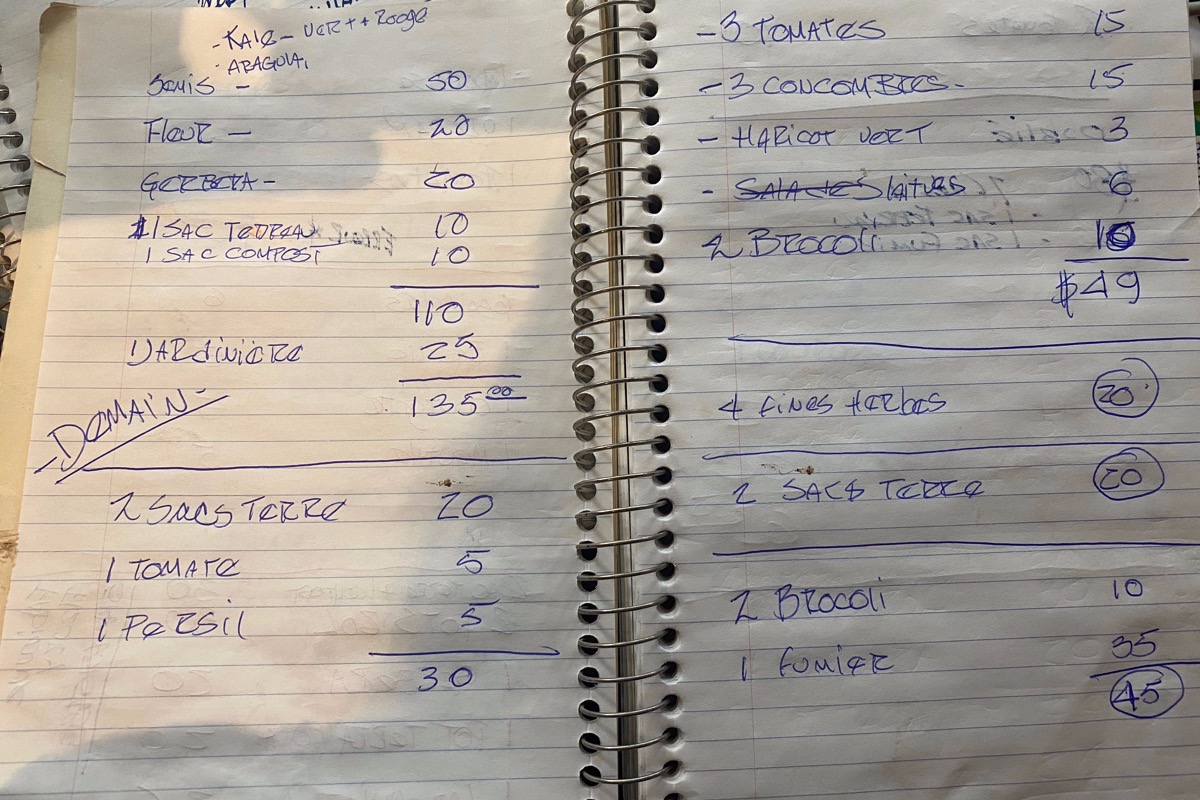 - KALE - VERT + ROUGE
- ARAGULA,
SEMIS - 50
FLEUR - 20
GERBERA - 20
1 SAC TERREAU 10
1 SAC COMPOST 10
110
1 JARDINIÈRE 25
135 00
- DEMAIN -
2 SACS TERRE 20
1 TOMATE 5
1 PERSIL 5
30
- 3 TOMATES 15
- 3 CONCOMBRES - 15
- HARICOT VERT 3
- SALADES laitues 6
2 BROCOLI 10
$49
4 FINES HERBES 20
2 SACS TERRE 20
2 BROCOLI 10
1 FUMIER 35
45